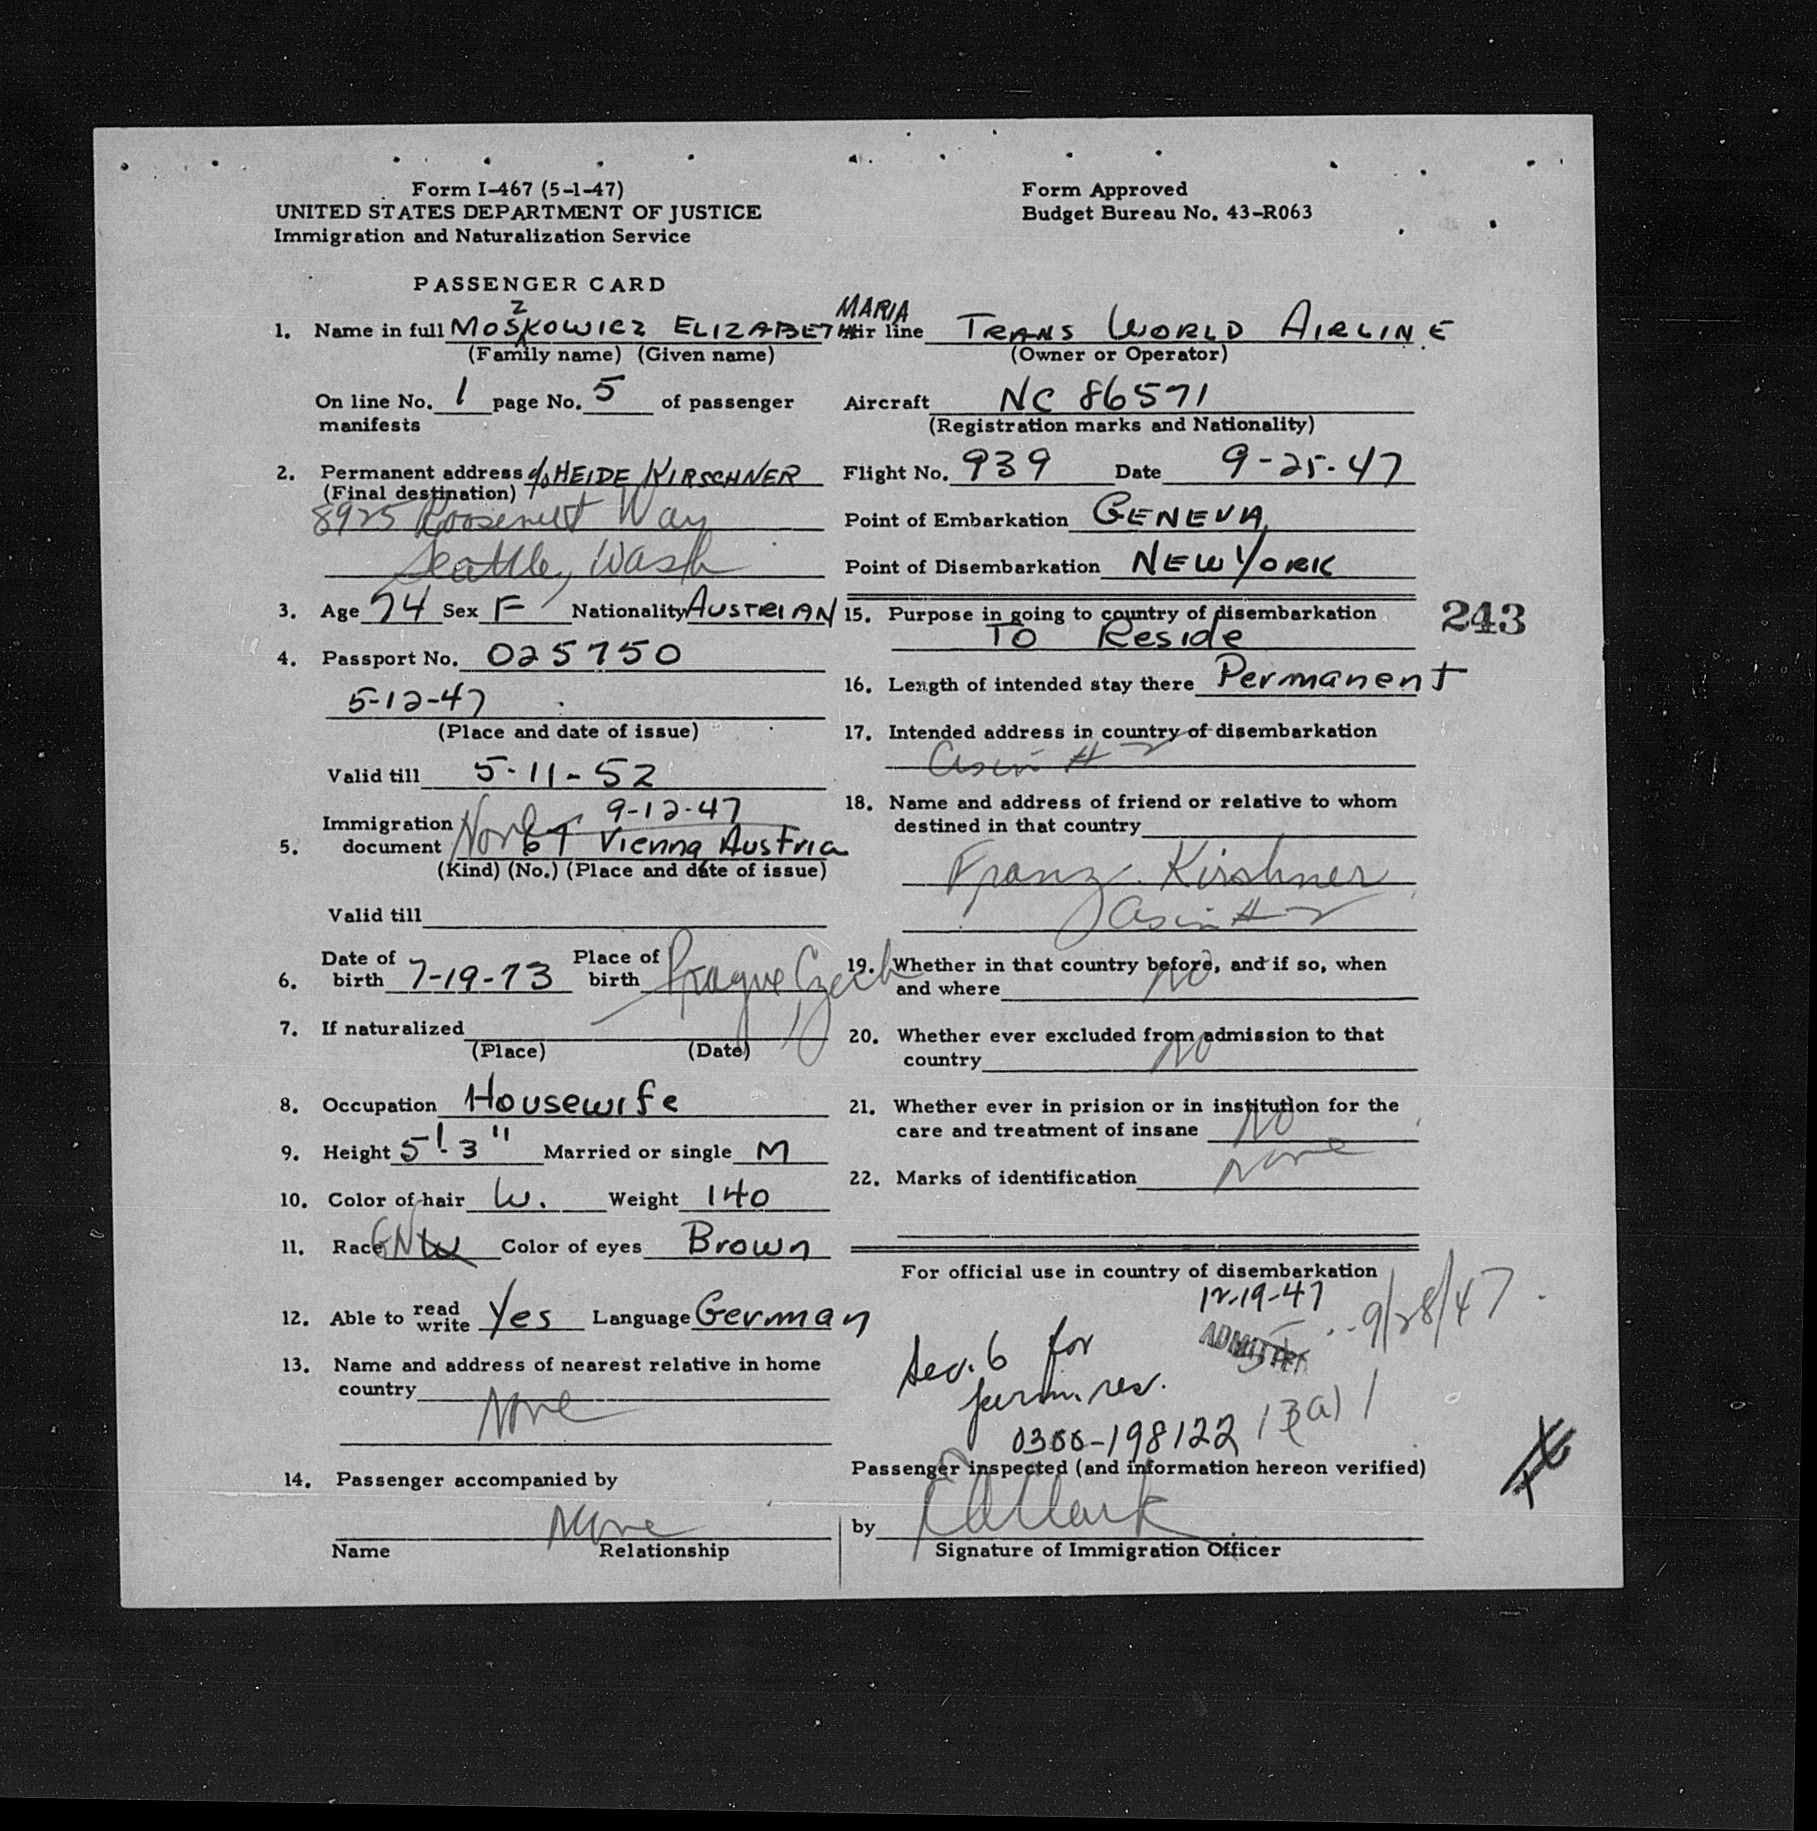 Form I-467 (5-1-47)
UNITED STATES DEPARTMENT OF JUSTICE
Immigration and Naturalization Service
Form Approved
Budget Bureau No. 43-R063
PASSENGER CARD
1. Name in full MOSZKOWICZ ELIZABETH MARIA
(Family name) (Given name)
On line No. 1 page No. 5 of passenger
manifests
2. Permanent address c/o HEIDE KIRSCHNER
(Final destination)
8925 Roosevelt Way
Seattle, Wash
3. Age 74 Sex F Nationality AUSTRIAN
4. Passport No. 025750
5-12-47
(Place and date of issue)
Valid till 5-11-52
9-12-47
Immigration
5. document 67 Vienna Austria
(Kind) (No.) (Place and date of issue)
Valid till
6. Date of birth 7-19-73 Place of birth Prague Czech
7. If naturalized
(Place) (Date)
8. Occupation Housewife
9. Height 5'-3" Married or single M
10. Color of hair W. Weight 140
11. Race Color of eyes Brown
12. Able to read write Yes Language German
13. Name and address of nearest relative in home
country None
14. Passenger accompanied by
None
Name Relationship
Air line TRANS WORLD AIRLINE
(Owner or Operator)
Aircraft NC 86571
(Registration marks and Nationality)
Flight No. 939 Date 9-25-47
Point of Embarkation GENEVA
Point of Disembarkation NEW YORK
15. Purpose in going to country of disembarkation
TO Reside
243
16. Length of intended stay there Permanent
17. Intended address in country of disembarkation
as in # 2
18. Name and address of friend or relative to whom
destined in that country
Franz Kirshner
as in # 2
19. Whether in that country before, and if so, when
and where NO
20. Whether ever excluded from admission to that
country NO
21. Whether ever in prision or in institution for the
care and treatment of insane NO
22. Marks of identification None
For official use in country of disembarkation
12-19-47
ADMITTED
9/28/47
Sec. 6 for
perm. res.
0300-198122
Passenger inspected (and information hereon verified)
by
Signature of Immigration Officer